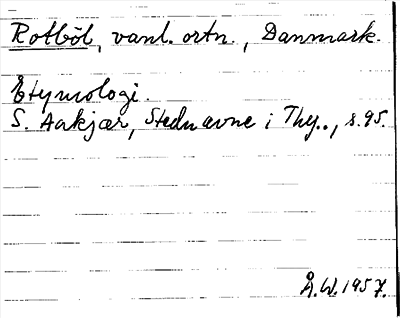 Rotböl, vanl. ortn., Danmark.
Etymologi.
S. Aakjær, Stednavne i Thy., s. 95.
Å.W. 1957.